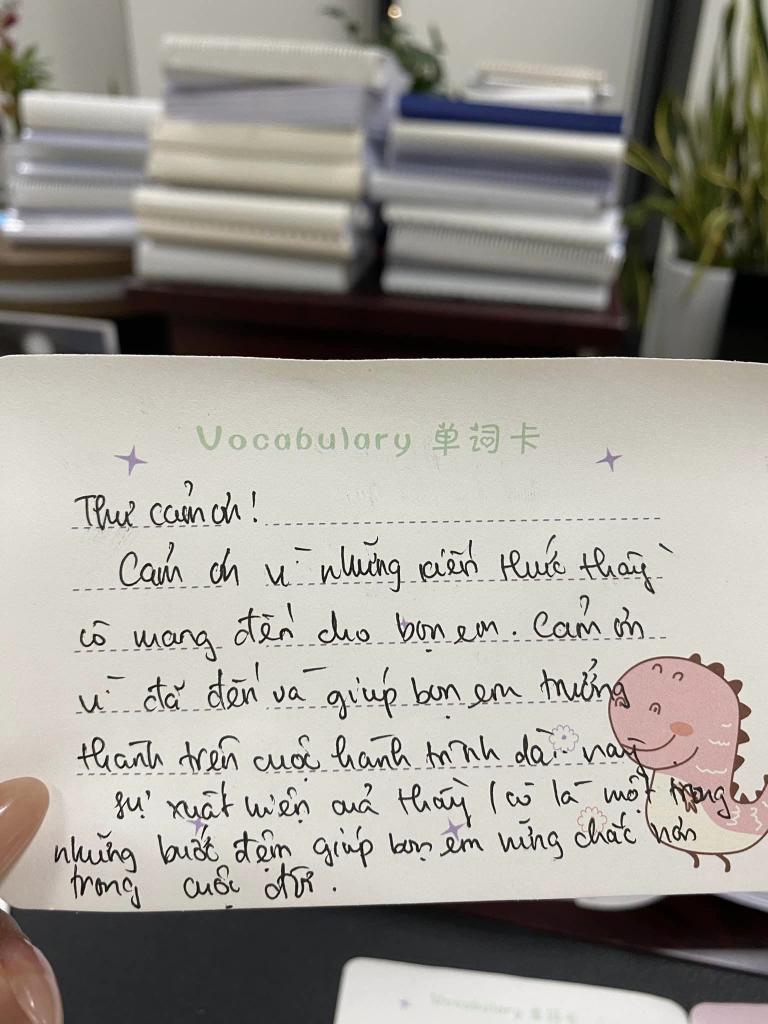 Vocabulary 单词卡
Thư cảm ơn!
Cảm ơn vì những kiến thức thầy
cô mang đến cho bọn em. Cảm ơn
vì đã đến và giúp bọn em trưởng
thành trên cuộc hành trình dài này
Sự xuất hiện của thầy / cô là một trong
những bước đệm giúp bọn em vững chắc hơn
trong cuộc đời.
Vocabulary 单词卡